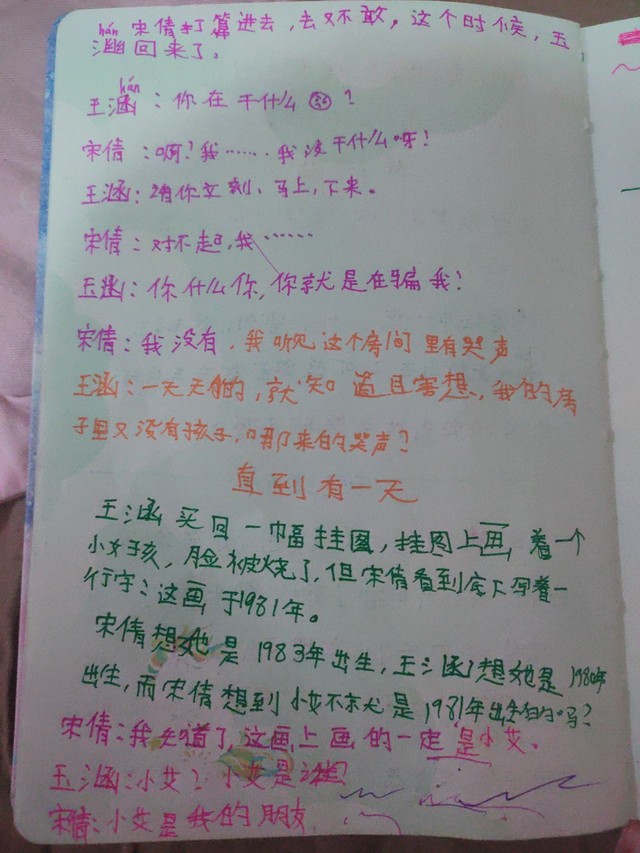 hán
宋倩打算进去,去又不敢。这个时候,王
涵回来了。
hán
王涵:你在干什么?
宋倩:啊?我……我没干什么呀!
王涵:请你立刻、马上,下来。
宋倩:对不起,我……
王涵:你什么你,你就是在骗我!
宋倩:我没有,我听见这个房间里有哭声
王涵:一天天的,就知道且害想,我的房
子里又没有孩子,哪来的哭声?
直到有一天
王涵买回一幅挂图,挂图上画着一个
小女孩,脸被烧了,但宋倩看到底下写着一
行字:这画于1981年。
宋倩想她是1983年出生,王涵想她是1980年
出生,而宋倩想到小艾不就是1981年出生的吗?
宋倩:我知道了,这画上画的一定是小艾。
王涵:小艾?小艾是谁?
宋倩:小艾是我的朋友